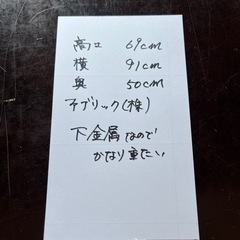 高口 69cm
横 91cm
奥 50cm
ネブリック(株)
下金属なので
かなり重たい